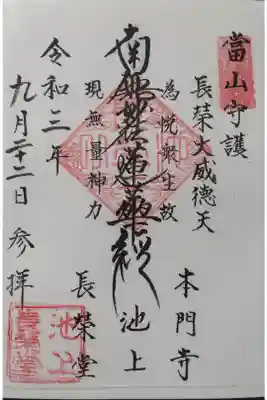 當山守護
長榮大威徳天
本門寺
為悦衆生故
南無妙法蓮華経
池上
現無量神力
長榮堂
令和三年
九月二十二日 参拝
池上
長榮堂